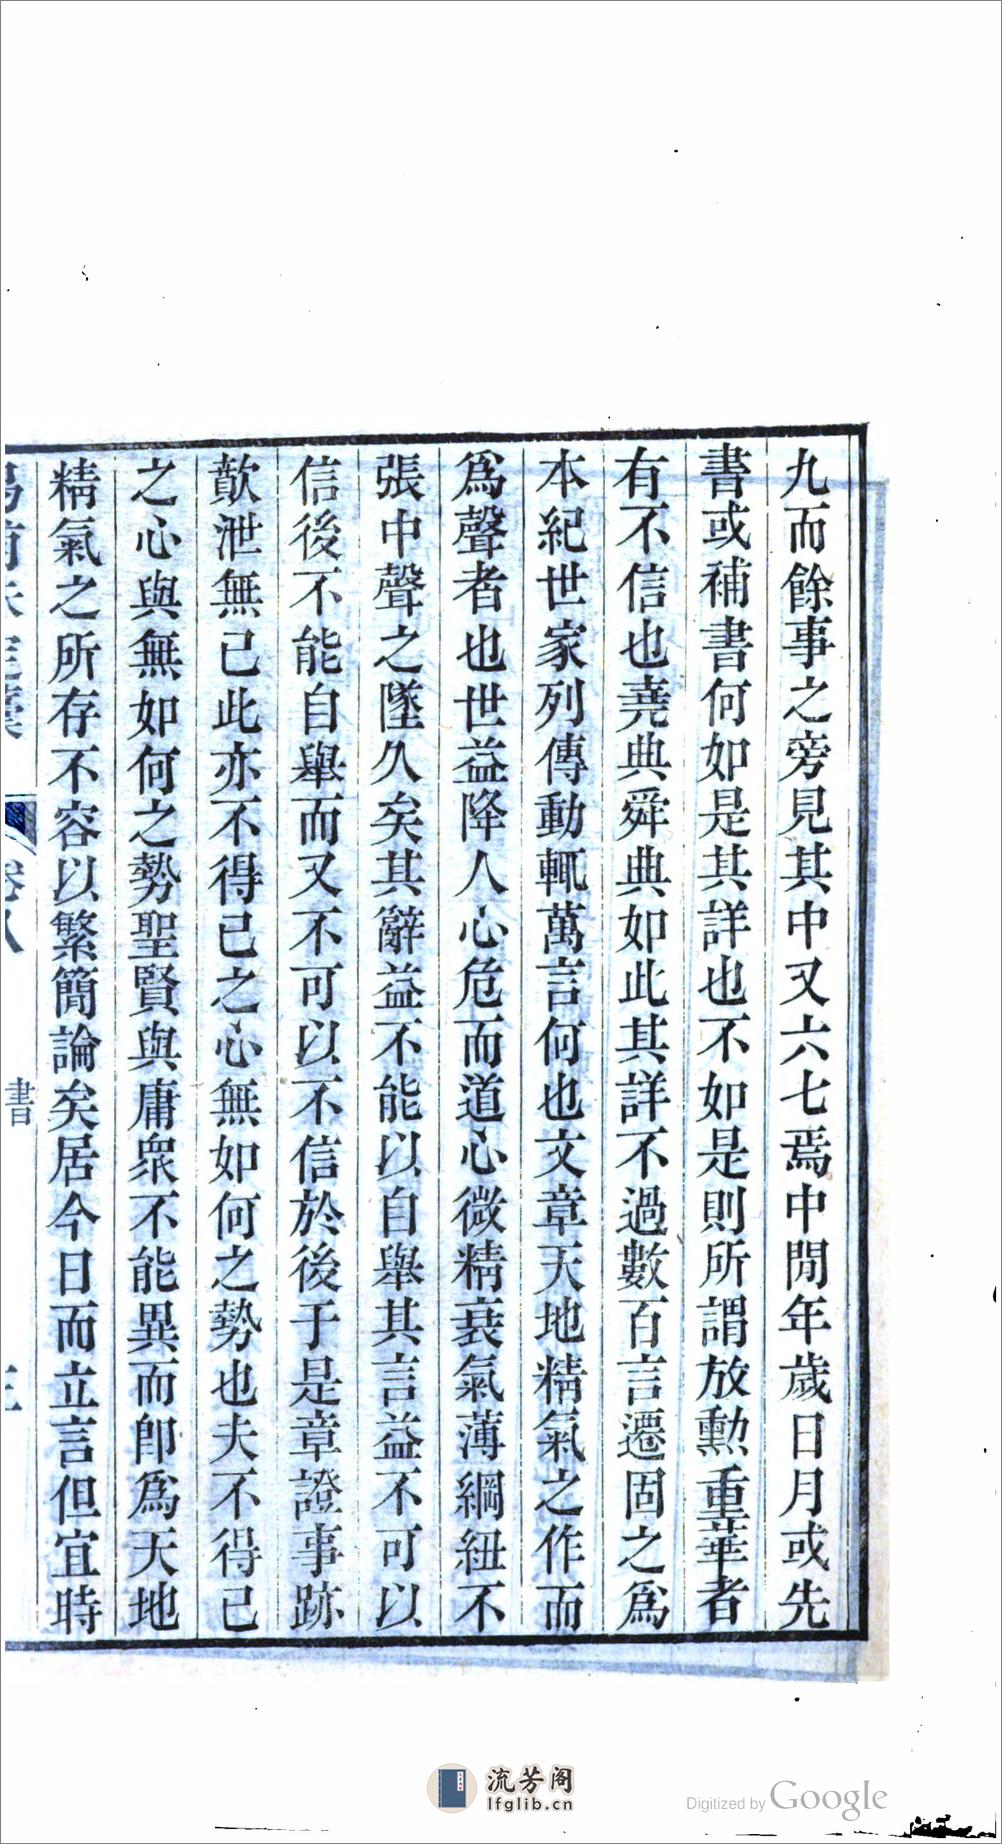 九而餘事之旁見其中又六七焉中閒年歲日月或先
書或補書何如是其詳也不如是則所謂放勲重華者
有不信也堯典舜典如此其詳不過數百言遷固之爲
本紀世家列傳動輒萬言何也文章天地精氣之作而
爲聲者也世益降人心危而道心微精衰氣薄綱紐不
張中聲之墜久矣其辭益不能以自舉其言益不可以
信後不能自舉而又不可以不信於後于是章證事跡
歕泄無已此亦不得已之心無如何之勢也夫不得已
之心與無如何之勢聖賢與庸衆不能異而卽爲天地
精氣之所存不容以繁簡論矣居今日而立言但宜時
卷八
書
流芳阁
lfglib.cn
Digitized by Google